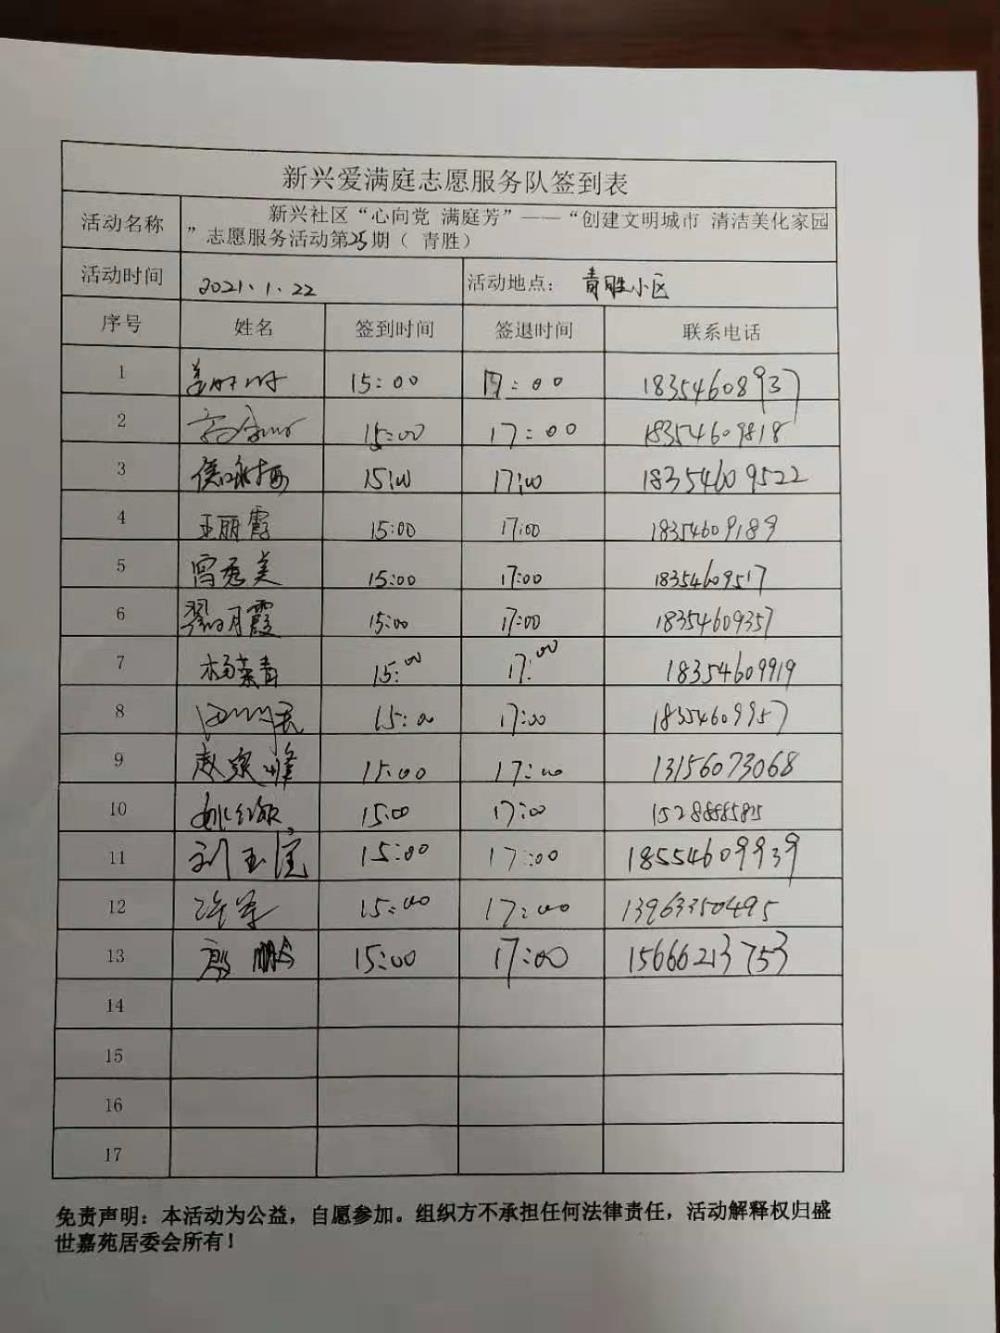 新兴爱满庭志愿服务队签到表
活动名称 新兴社区“心向党 满庭芳”——“创建文明城市 清洁美化家园
”志愿服务活动第25期（ 青胜）
活动时间 2021.1.22 活动地点： 青胜小区
序号 姓名 签到时间 签退时间 联系电话
1 15:00 17:00 18354608937
2 15:00 17:00 18354609818
3 侯咏梅 15:00 17:00 18354609522
4 王丽霞 15:00 17:00 18354609189
5 15:00 17:00 18354609517
6 翟月霞 15:00 17:00 18354609357
7 杨荣青 15:00 17:00 18354609919
8 15:00 17:00 18354609957
9 赵宗峰 15:00 17:00 13156073068
10 15:00 17:00
11 刘玉滨 15:00 17:00 18554609939
12 15:00 17:00 13963350495
13 殷鹏 15:00 17:00 15666213753
14
15
16
17
免责声明：本活动为公益，自愿参加。组织方不承担任何法律责任，活动解释权归盛
世嘉苑居委会所有！